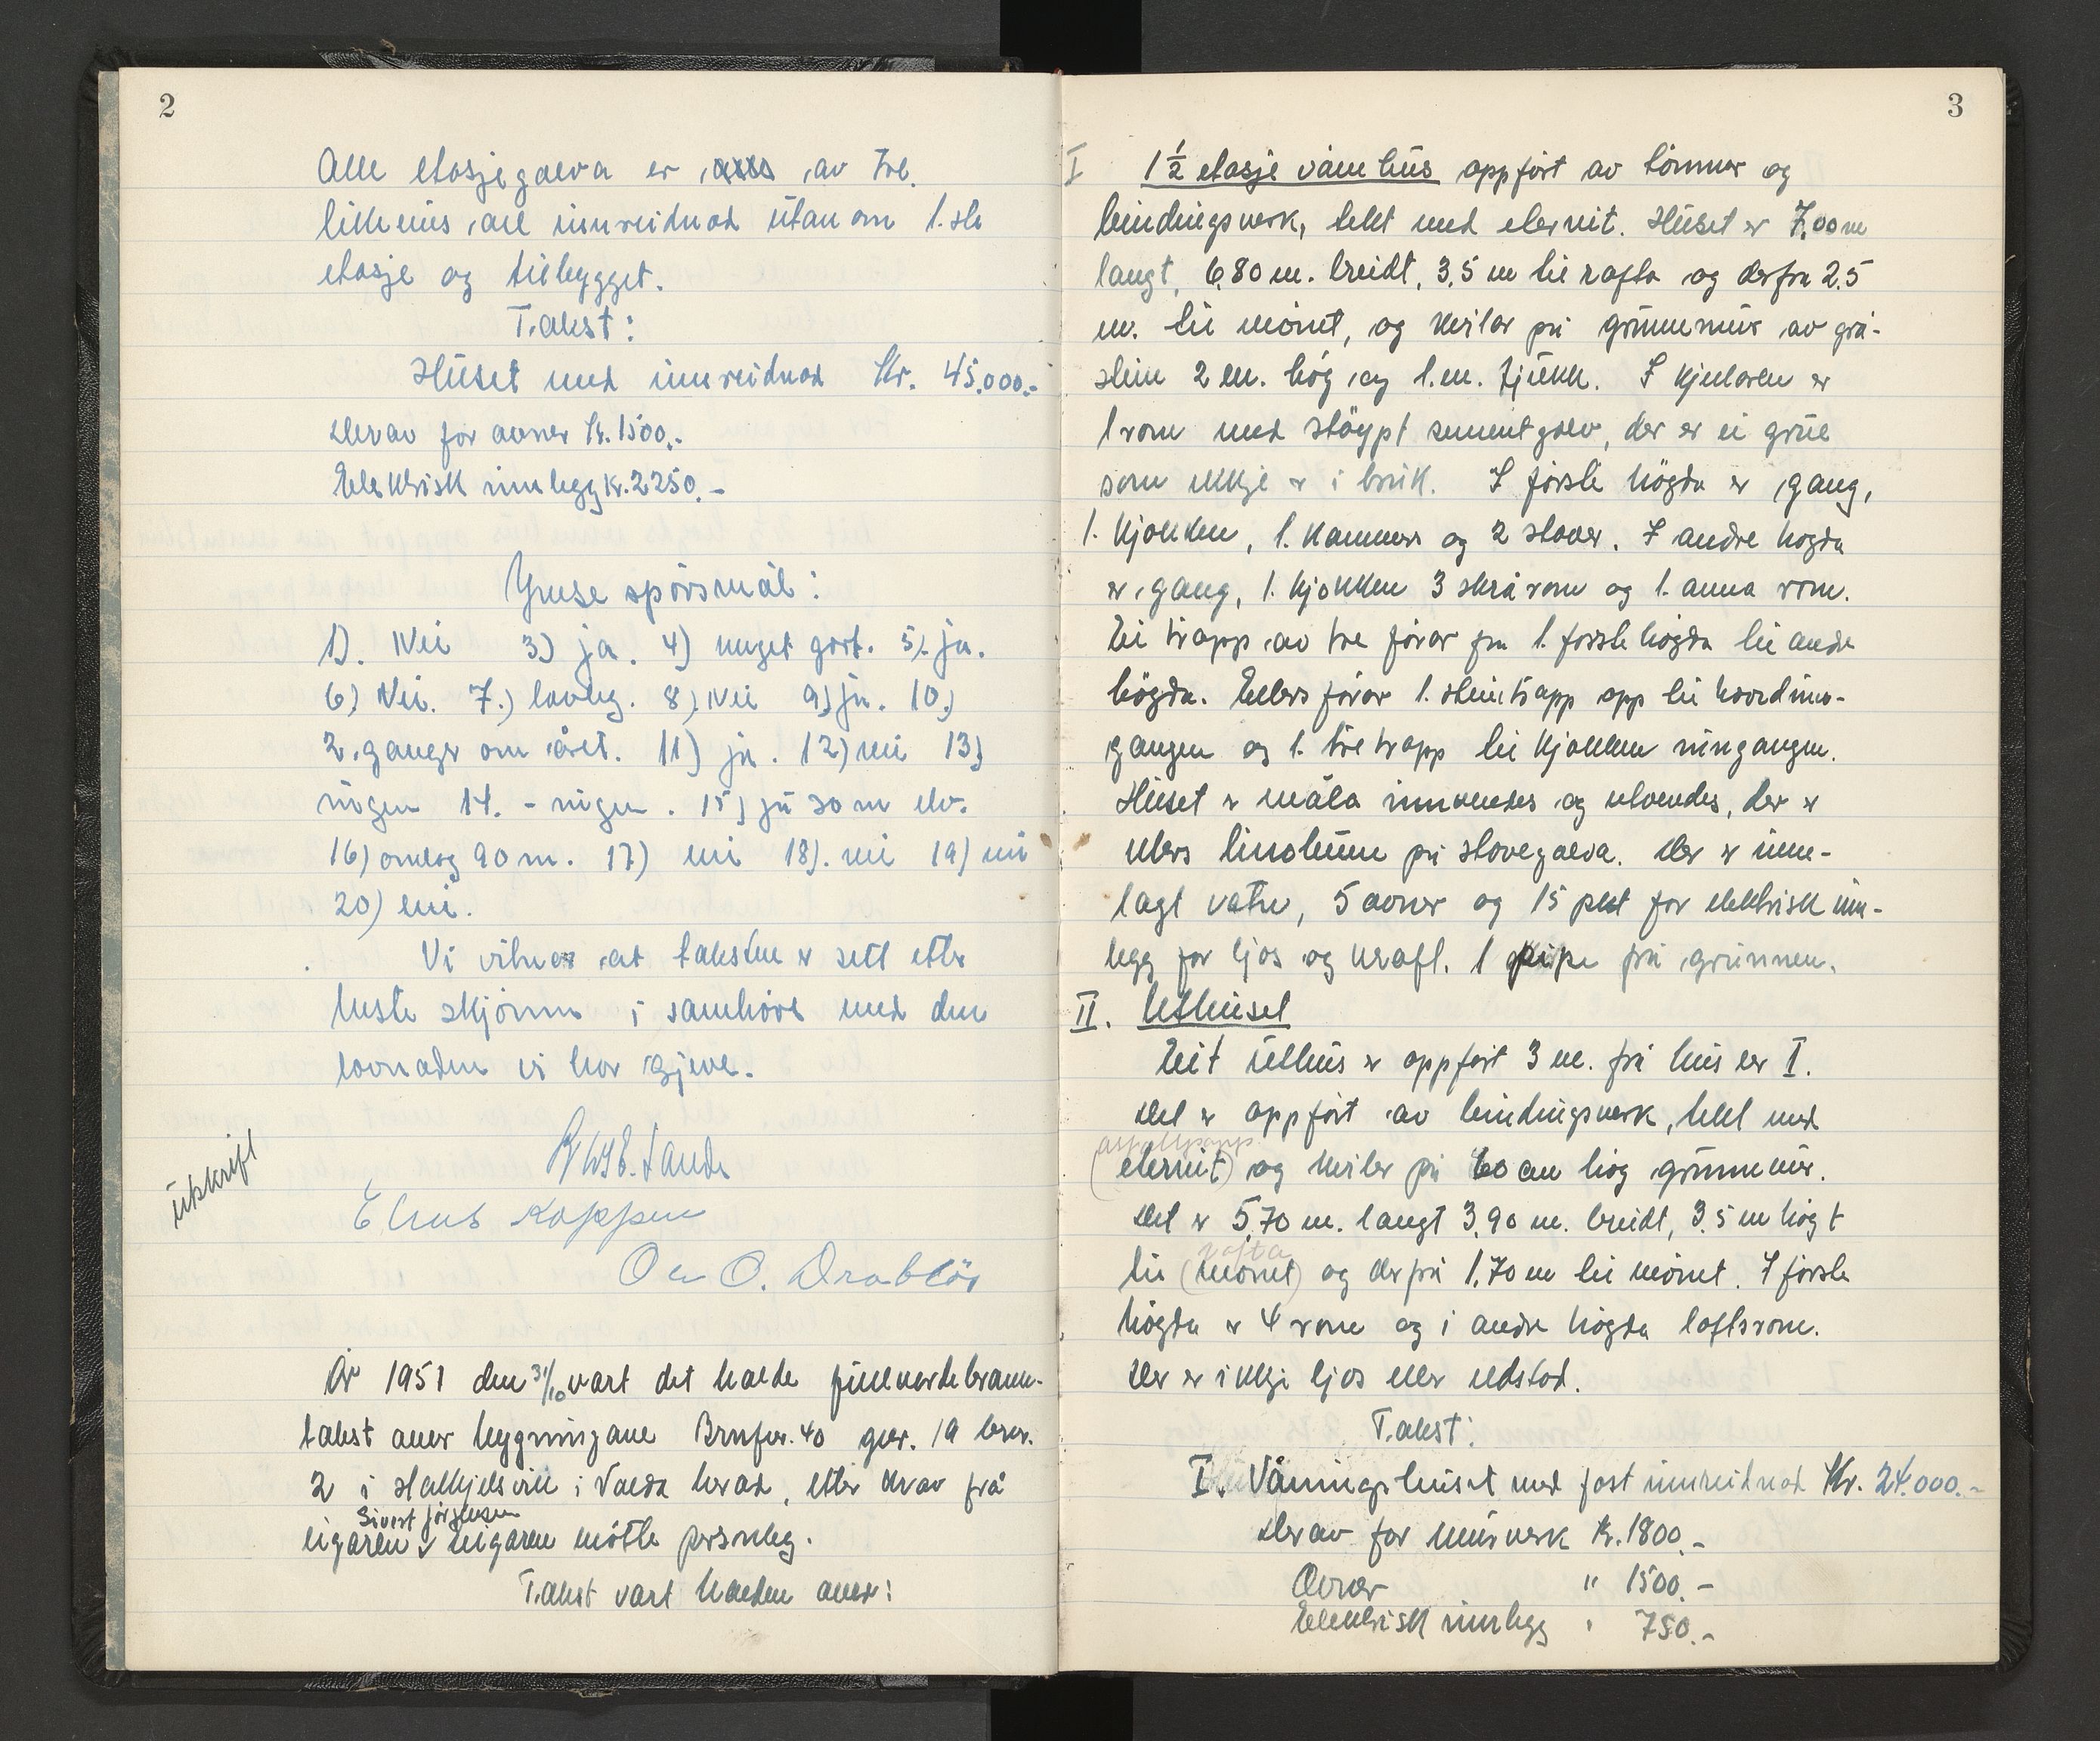 2
Alle etasjegolva er av tre.
likeeins all innreidnad utanom 1.ste
etasje og tilbygget.
Takst:
Huset med innreidnad Kr. 45.000.-
Derav for ovner kr. 1500.-
Elektrisk innlegg kr. 2250.-
Ymse spörsmål:
1). Nei 3) ja. 4) noget gort. 5). ja.
6) Nei. 7.) lovleg. 8) Nei 9) ja. 10.)
2 ganger om året. 11) ja. 12) nei 13)
ingen 14. - ingen. 15) ja 30 m elv.
16) omlag 90 m. 17) nei 18). nei 19) nei
20) nei.
Vi vitnar at taksten er sett etter
beste skjönn i samhöve med den
lovnaden vi har gjeve.
Elias Koppen
Ole O. Drabløs
utskrift
År 1951 den 31/10 vart det halde fullverdebrann-
takst over bygningane Brnfnr. 40 gnr. 19 bnr.
2 i Stakkjelsvik i Volda herad, etter krav frå
Sivert Jörgensen
eigaren v eigaren mötte personleg.
Takst vart halden over:
3
I 1 1/2 etasje våne hus oppfört av tömmer og
bindingsverk, kledt med eternit. Huset er 7,00 m
langt, 6,80 m. breidt, 3,5 m til rafta og derfra 2,5
m. til mönet, og kviler på grunnmur av grå-
stein 2 m. hög og 1. m. tjukk. I kjellaren er
1 rom med stöypt sementgolv, der er ei grue
som ikkje er i bruk. I förste högda er gang,
1. kjökken, 1. kammers og 2 stover. I andre högda
er gang, 1. kjökken 3 skrårom og 1. anna rom.
Ei trapp av tre förar fra 1. förste högda til andre
högda. Ellers förar 1. steintrapp opp til hovedinn-
gangen og 1. tretrapp til kjökken inngangen.
Huset er måla innvendes og utvendes, der er
ellers linoleum på stovegolva. Der er inn-
lagt vatn, 5 ovner og 15 pkt for elektrisk inn-
legg for ljos og kraft. 1 pipe frå grunnen.
II. Uthuset
Eit uthus er oppfört 3 m. frå hus nr I.
Det er oppfört av bindingsverk, kledt med
asfaltpapp
(eternit) og kviler på 60 cm hög grunnmur.
Det er 5,70 m. langt 3,90 m. breidt, 3.5 m högt
rafta
til (mönet) og derfrå 1,70 m til mönet. I förste
högda er 4 rom og i andre högda loftsrom.
Der er ikkje ljos eller eldstad.
Takst:
I. Våningshuset med fast innreidnad Kr. 24.000.-
Derav for murverk kr. 1800.-
Ovner " 1500.-
Elektrisk innlegg " 750.-